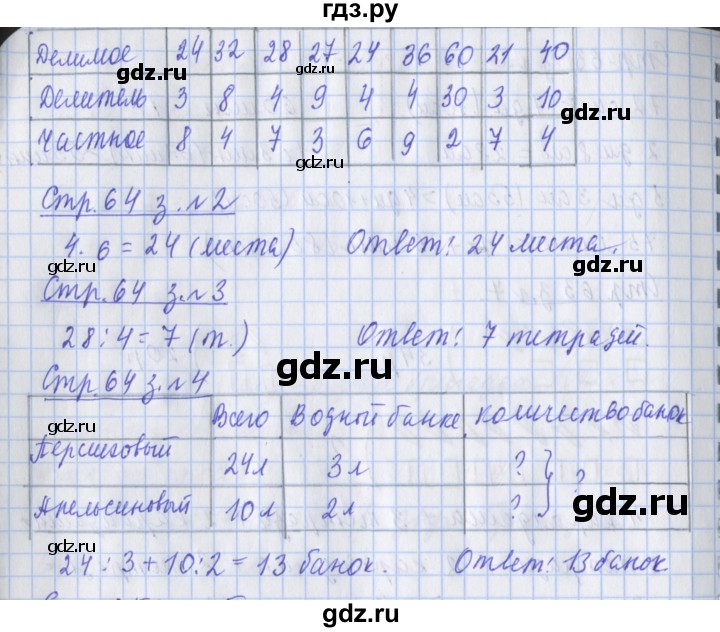 гдз.ру
Делимое 24 32 28 27 24 36 60 21 40
Делитель. 3 8 4 9 4 4 30 3 10
Частное 8 4 7 3 6 9 2 7 4
Стр. 64 з. №2
4 · 6 = 24 (места) Ответ: 24 места.
Стр. 64 з. №3
28 : 4 = 7 (т.) Ответ: 7 тетрадей.
Стр. 64 з. №4
Всего В одной банке количество банок
Персиковый 24 л 3 л ? } ?
Апельсиновый 10 л 2 л ?
24 : 3 + 10 : 2 = 13 банок. Ответ: 13 банок
gdz.ru
gdz.ru
gdz.ru
gdz.ru
gdz.ru
gdz.ru
gdz.ru
gdz.ru
gdz.ru
gdz.ru
gdz.ru
gdz.ru
gdz.ru